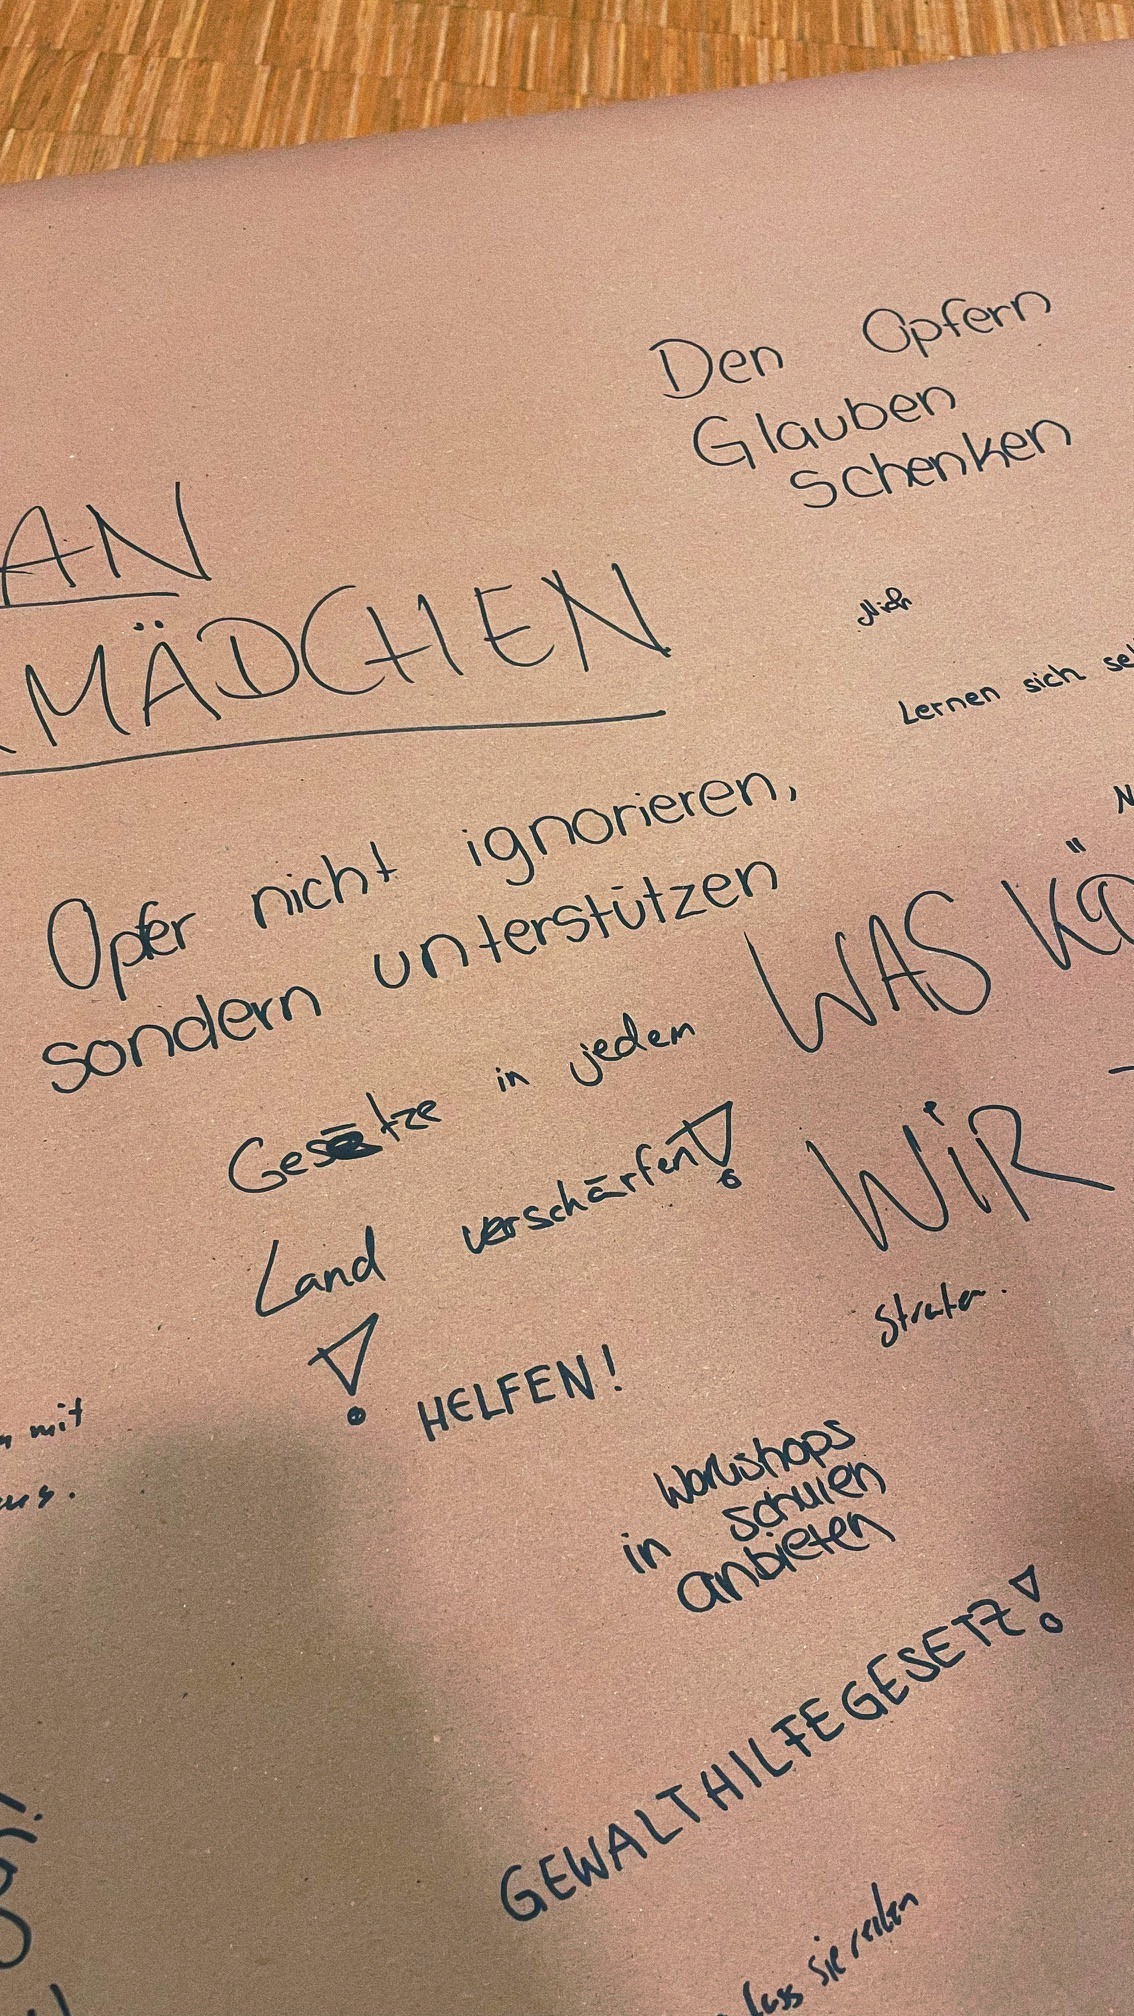 Den Opfern
Glauben
Schenken
AN
MÄDCHEN
Lernen sich
Opfer nicht ignorieren,
sondern unterstützen
WAS
WIR
Gesetze in jedem
Land verschärfen!
!
HELFEN!
mit
Workshops
in schulen
anbieten
GEWALTHILFEGESETZ!